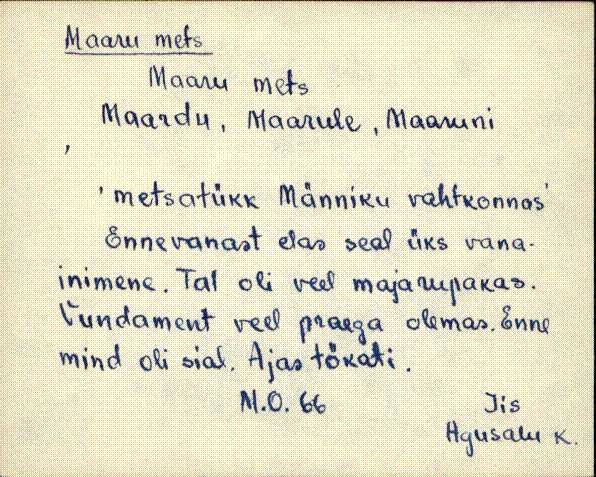 Maaru mets
Maaru mets
Maardu, Maarule, Maaruni
,
'metsatükk Männiku vahtkonnas'
Ennevanast elas seal üks vana-
inimene. Tal oli veel majarupakas.
Vundament veel praega olemas. Enne
mind oli sial. Ajas tökati.
M.O. 66
Jis
Agusalu K.